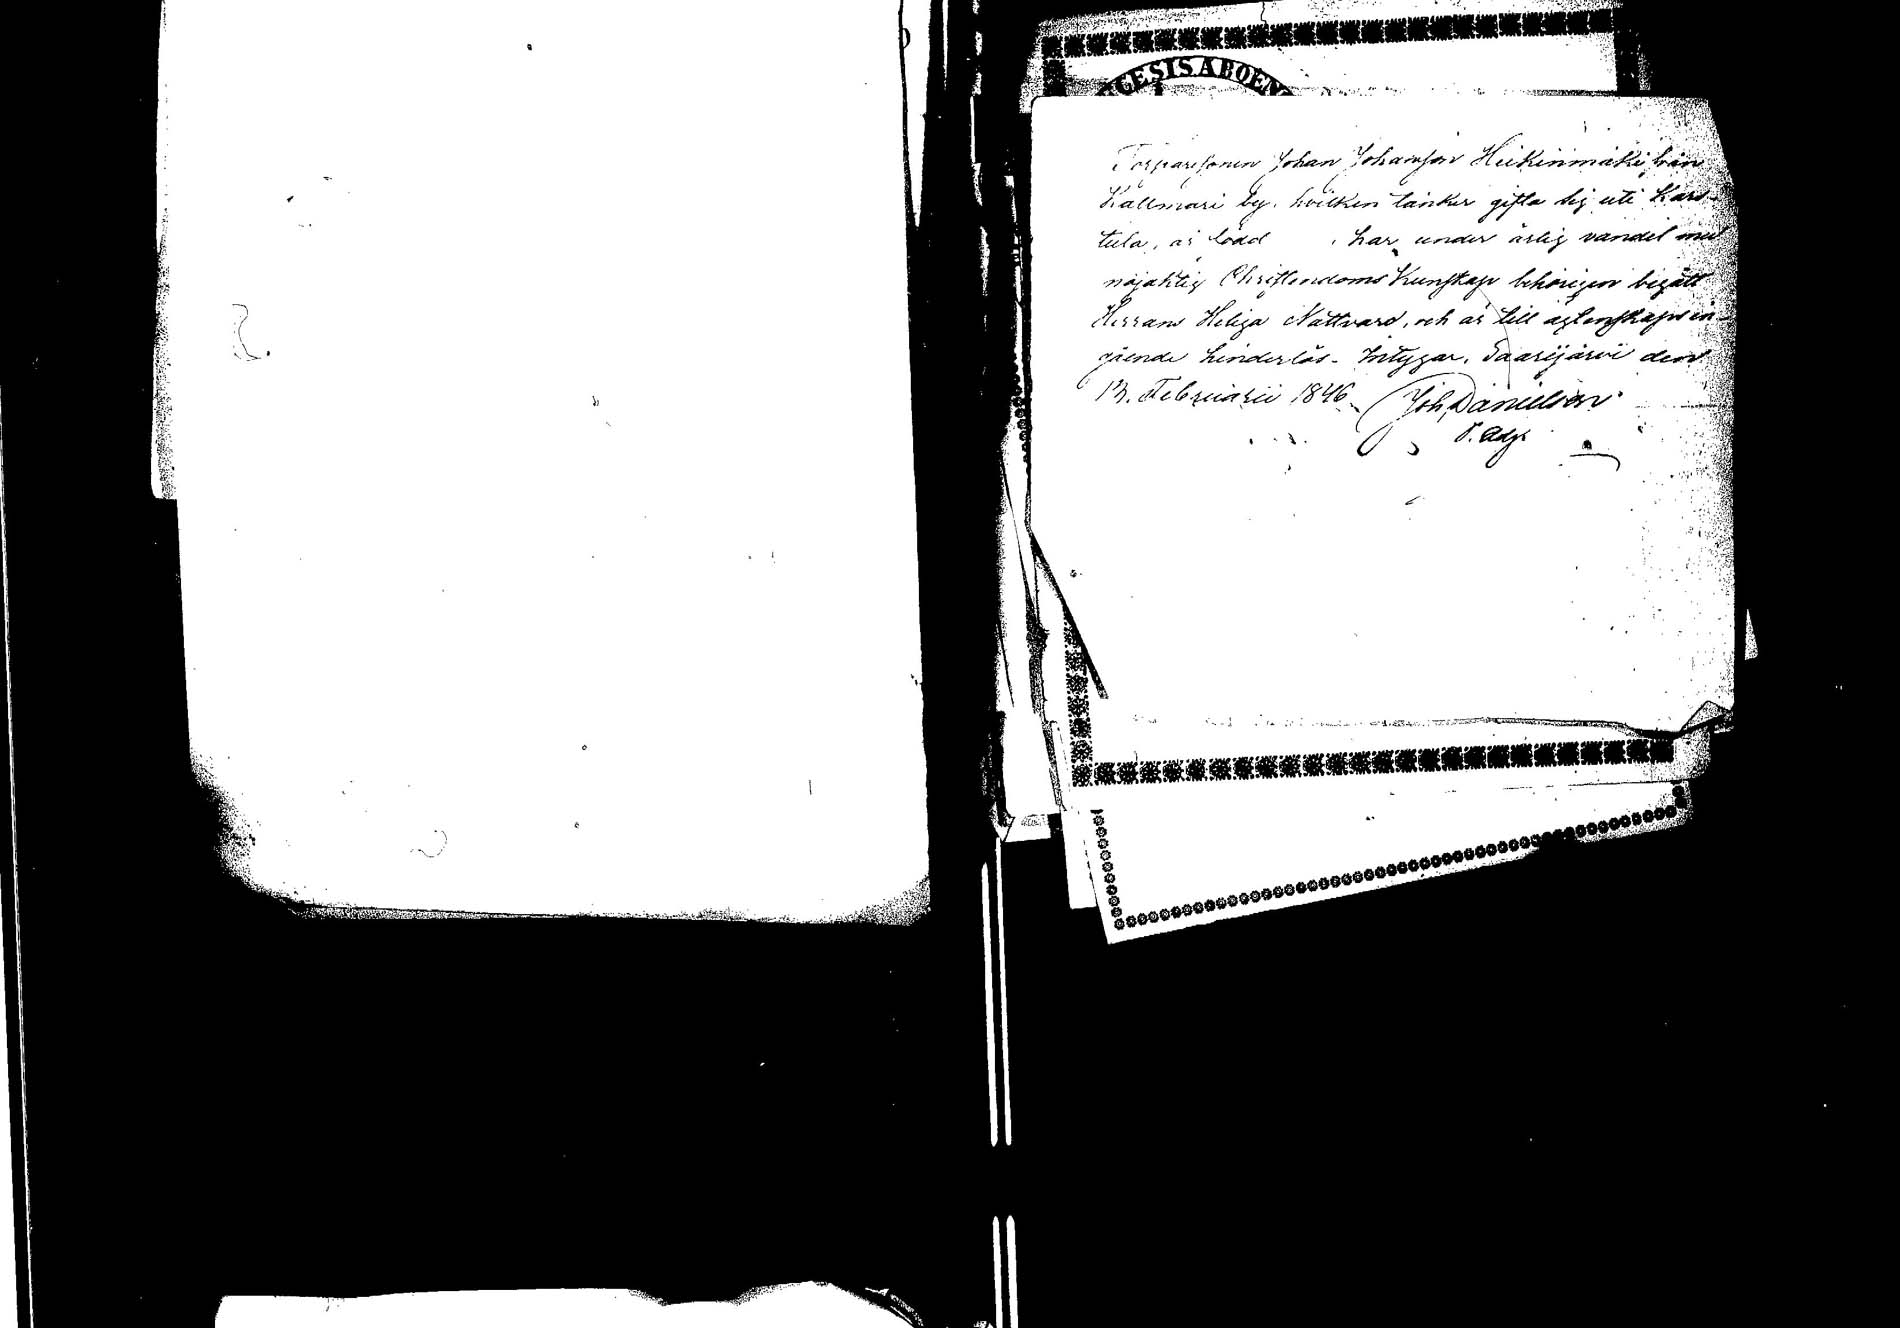 ECESIS ABOËN
Torparesonen Johan Johansson Heikinmäki från
Kallmari by, hvilken tänker gifta sig uti Kars-
tula, är född , har under ärlig vandel med
nöjaktig Christendoms Kunskap behörigen begått
Herrans Heliga Nattvard, och är till ägtenskaps in-
gående hinderlös. Intygar, Saarijärvi den
13. Februarii 1846. Joh. Danielson
v. Adj.